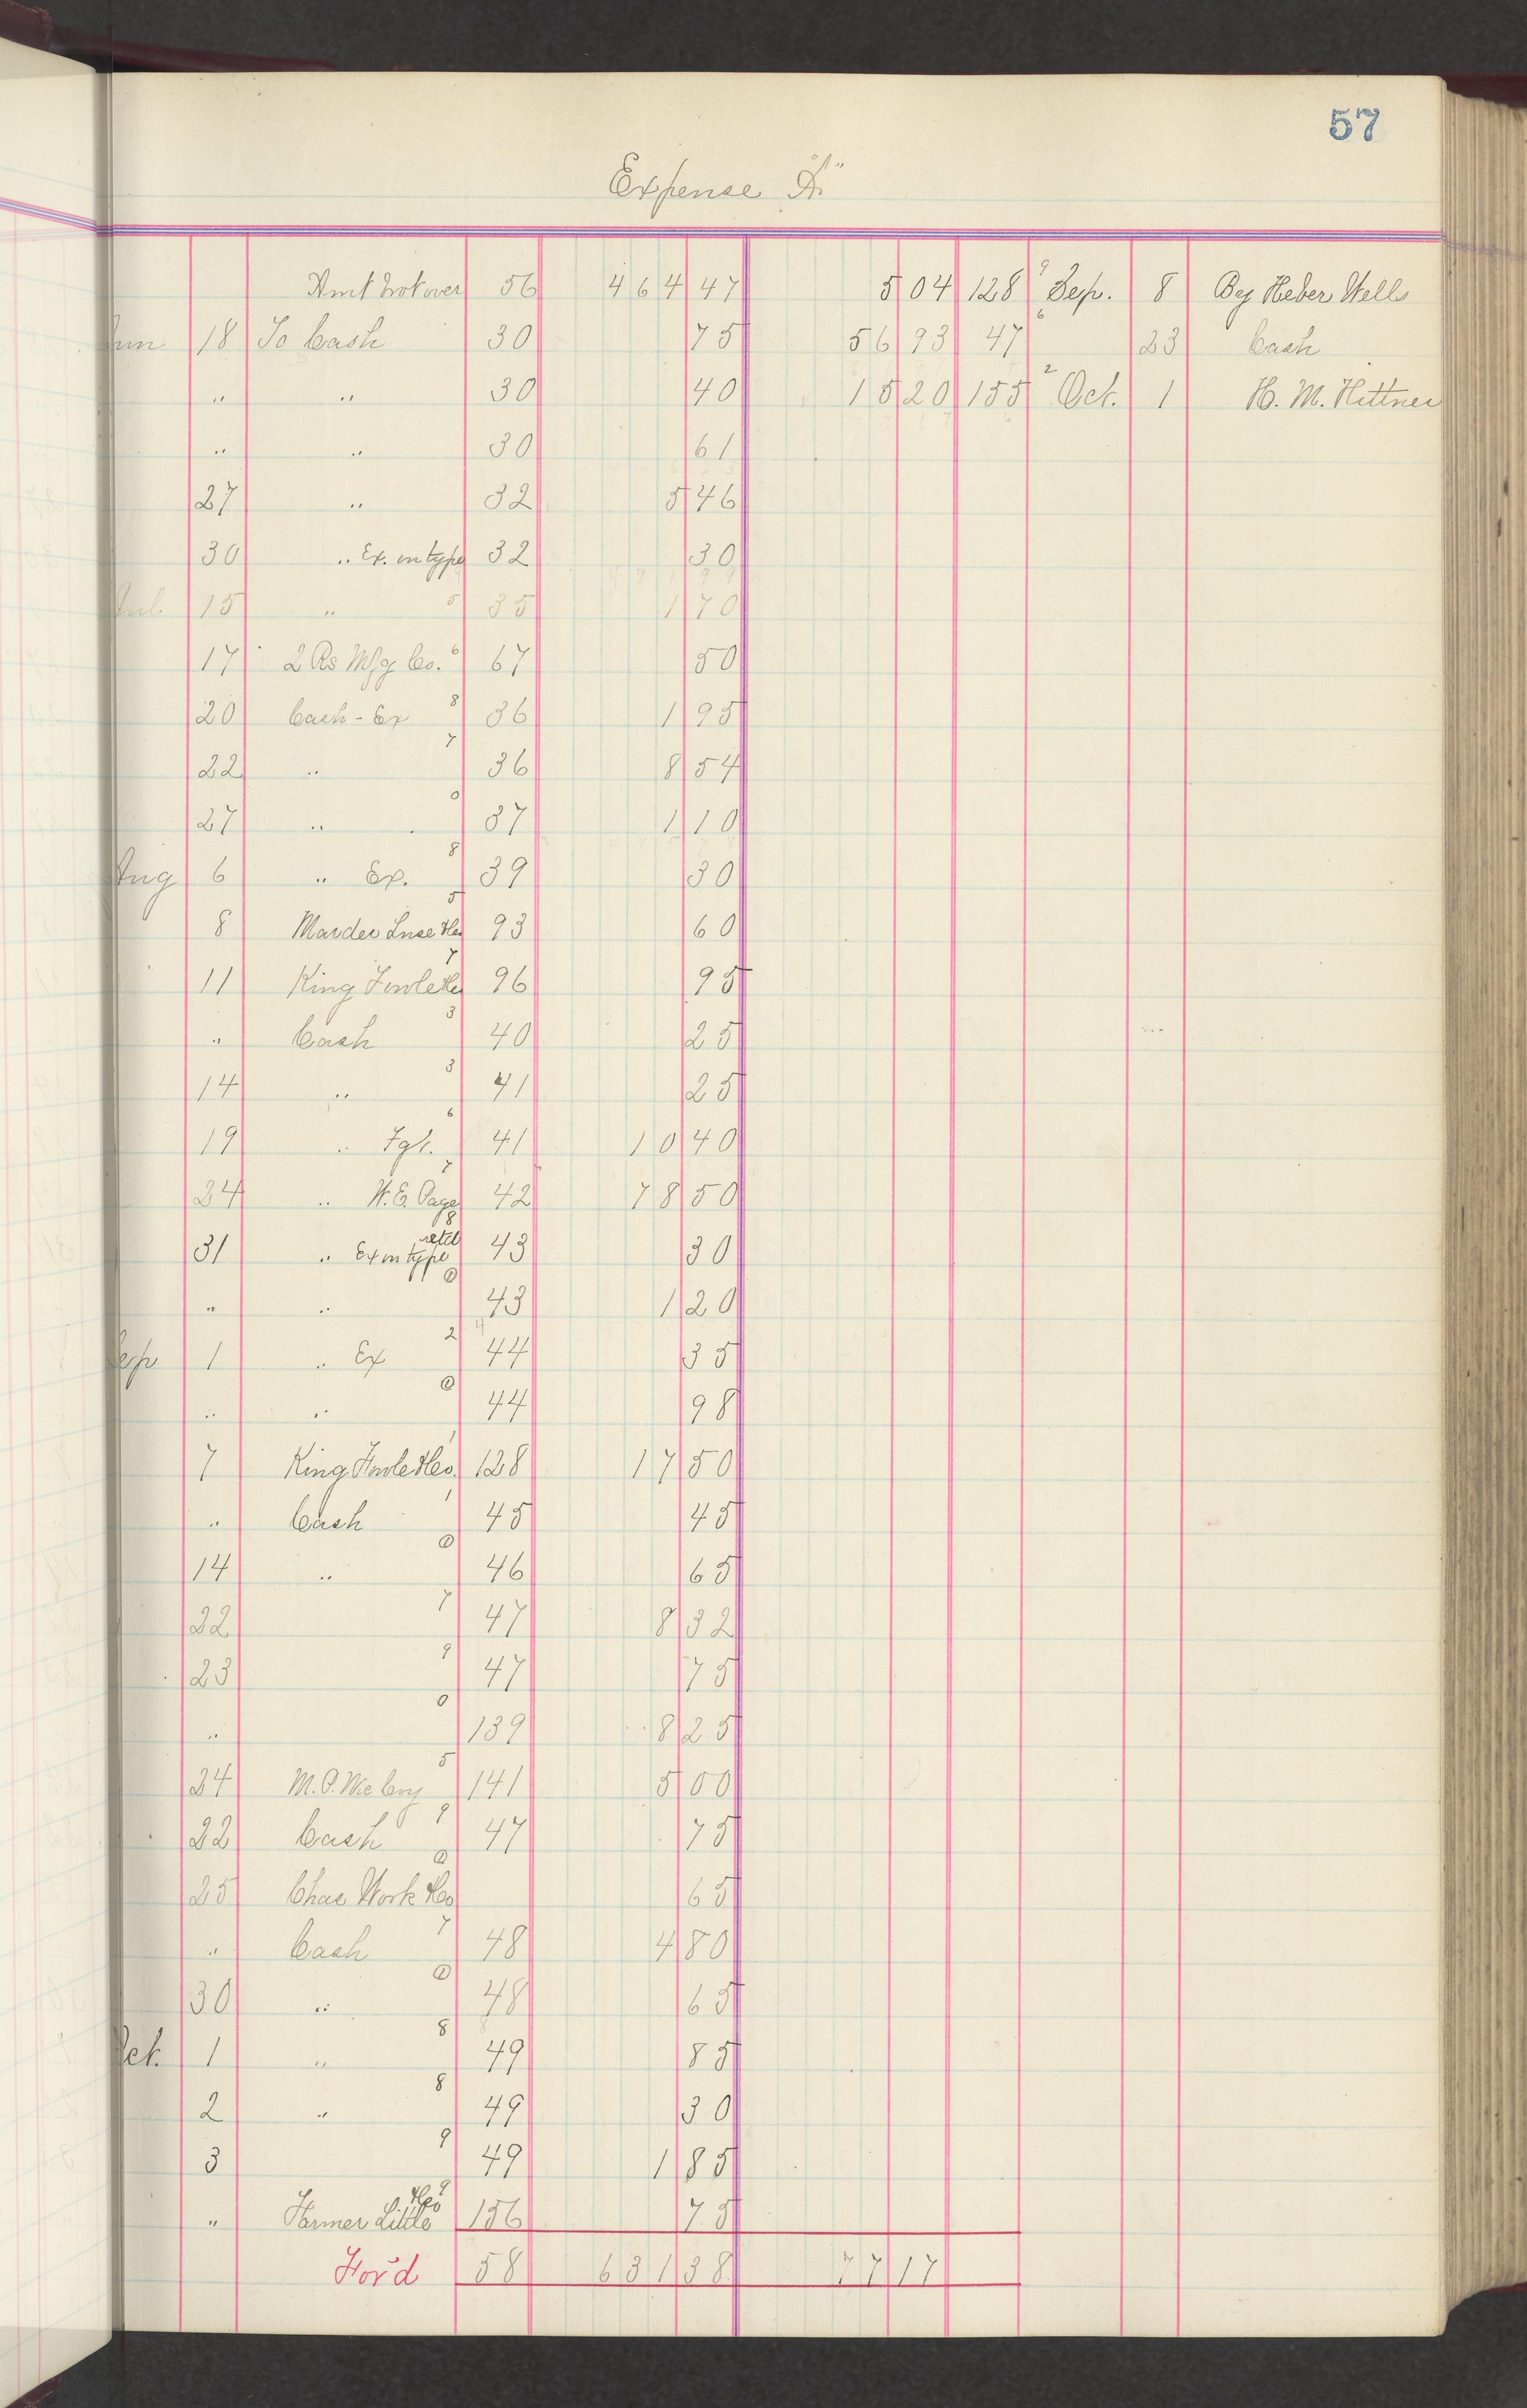 57
Expense "A"
Amt brot over 56 464 47 5 04 128 9 Sep. 8 By Heber Wells
Jun 18 To Cash 30 75 56 93 47 6 23 Cash
" " 30 40 15 20 155 2 Oct. 1 H. M. Hittner
" " 30 61
27 " 32 5 46
30 " Ex. on type 32 30
Jul. 15 " 5 35 1 70
17 Mfg Co. 6 67 50
20 Cash - Ex 8 36 1 95
22 " 7 36 8 54
27 " 0 37 1 10
Aug 6 " Ex. 8 39 30
8 Marder Luse &Co 5 93 60
11 King Fowle &Co 7 96 95
" Cash 3 40 25
14 " 3 41 25
19 " Fgt. 6 41 10 40
24 " W. E. Page 7 42 78 50
31 " Ex on type retd 8 43 30
" " 0 43 1 20
Sep 1 " Ex 2 44 35
" " 0 44 98
7 King Fowle &Co. 1 128 17 50
" Cash 1 45 45
14 " 0 46 65
22 7 47 8 32
23 9 47 75
" 0 139 8 25
24 M. O. 5 141 5 00
22 Cash 9 47 75
25 Chas Work &Co 0 65
" Cash 7 48 4 80
30 " 0 48 65
Oct. 1 " 8 49 85
2 " 8 49 30
3 9 49 1 85
" Farmer Little &Co 9 156 75
For'd 58 631 38 77 17